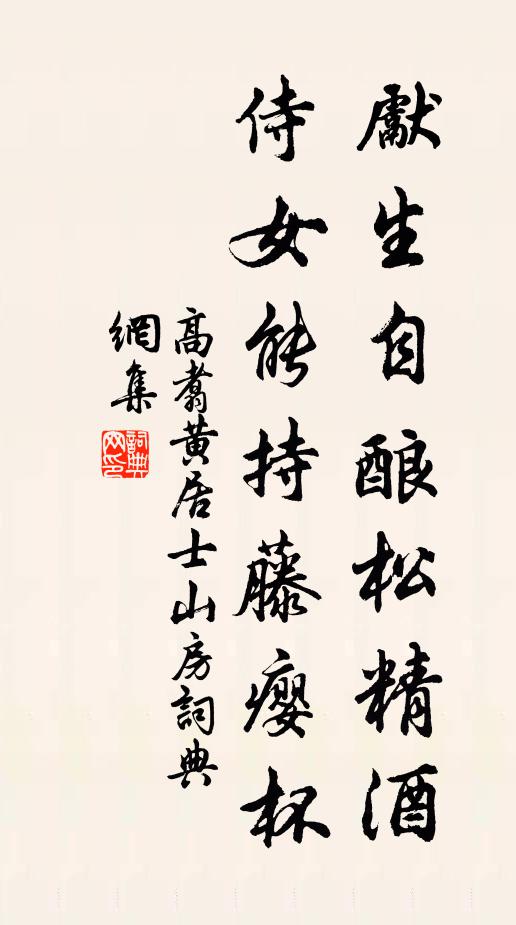 獻生自酿松精酒
侍女能持藤瘿杯
高翥黄居士山房詞典
網集
詞典
网印